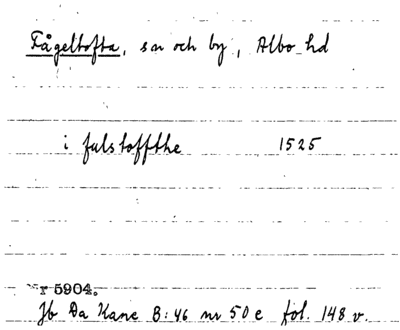 Fågeltofta, sn och by, Albo hd
i fulstoffthe 1525
Nr 5904.
Jb Da Kanc B:46 nr 50 e fol. 148 v.